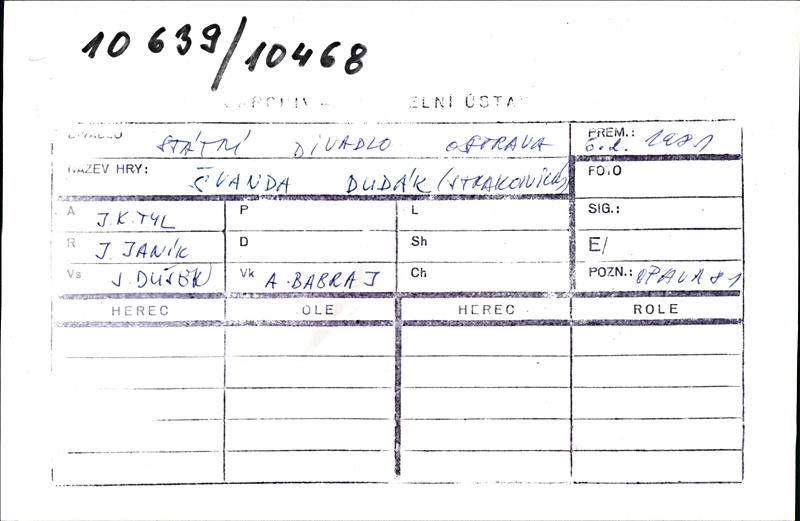 10 639/10468
ARCHIV ELNÍ ÚSTA
DIVADLO STÁTNÍ DIVADLO OSTRAVA PREM.: 6.2. 1981
NÁZEV HRY: ŠVANDA DUDÁK (STRAKONICKÝ) FOTO
A J.K. TYL P L SIG.:
R J. JANÍK D Sh E/
Vs J. DUŠEK Vk A. BABRAJ Ch POZN.: OPAVA 81
HEREC OLE HEREC ROLE